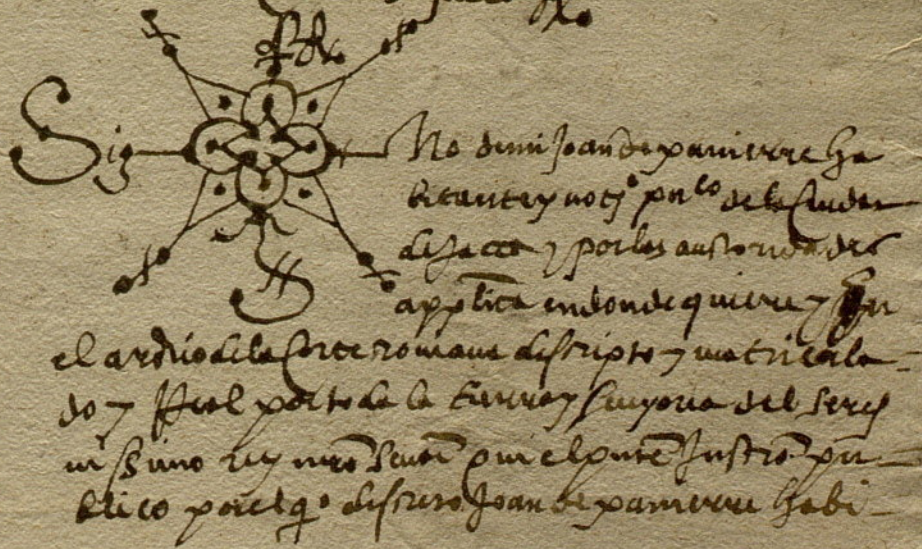 Sig No de mi Joan de xavierre ha
bitante y not.º pu.co de la Ciudat
de Jacca y por las auctoridades
appli.ca en donde quiere y En
el archivo de la Corte romana descripto y matricula
do y Real por toda la tierra y Sinyoria del sere
nissimo rey nro Senor que el pnte Instro pu
blico por el q.º discreto Joan de xavierre habi